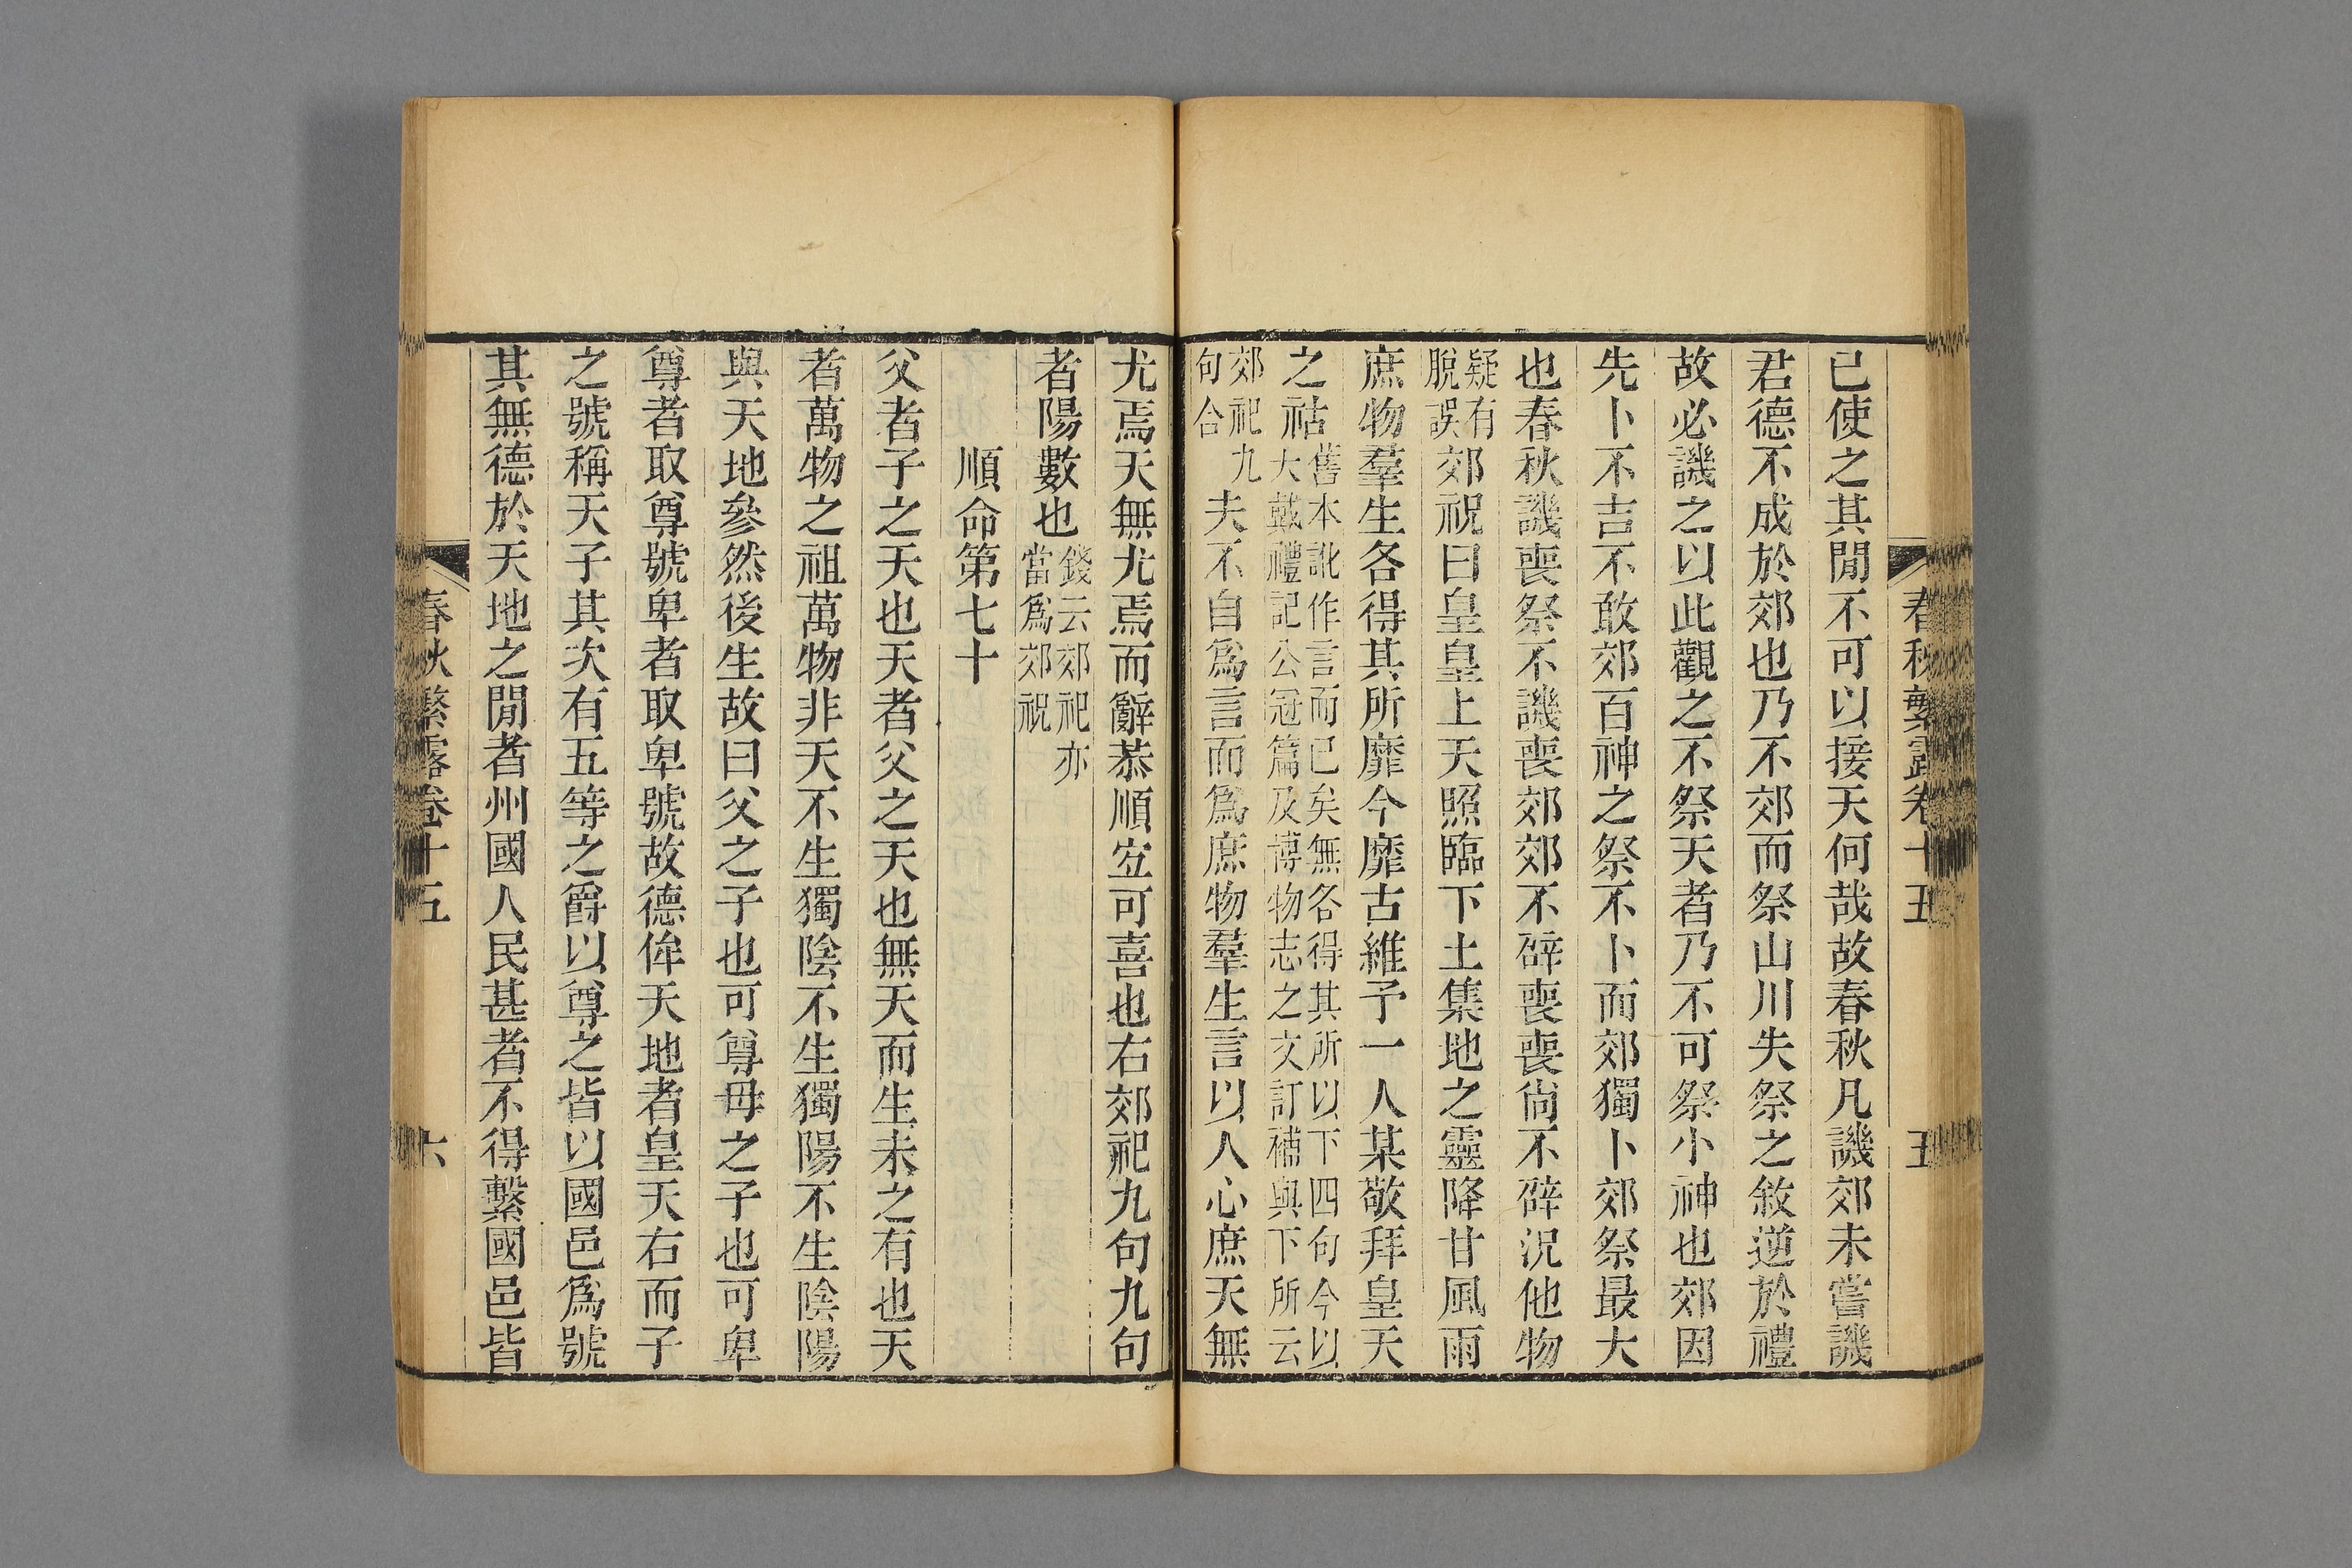 春秋繁露卷十五 五
已使之其閒不可以接天何哉故春秋凡譏郊未嘗譏
君德不成於郊也乃不郊而祭山川失祭之敘逆於禮
故必譏之以此觀之不祭天者乃不可祭小神也郊因
先卜不吉不敢郊百神之祭不卜而郊獨卜郊祭最大
也春秋譏喪祭不譏喪郊郊不辟喪喪尙不辟況他物
疑有脫誤郊祝曰皇皇上天照臨下土集地之靈降甘風雨
庶物羣生各得其所靡今靡古維予一人某敬拜皇天
之祜舊本訛作言而已矣無各得其所以下四句今以大戴禮記公冠篇及博物志之文訂補與下所云
郊祀九句合夫不自爲言而爲庶物羣生言以人心庶天無
尤焉天無尤焉而辭恭順宐可喜也右郊祀九句九句
者陽數也錢云郊祀亦當爲郊祝
順命第七十
父者子之天也天者父之天也無天而生未之有也天
者萬物之祖萬物非天不生獨陰不生獨陽不生陰陽
與天地參然後生故曰父之子也可尊母之子也可卑
尊者取尊號卑者取卑號故德侔天地者皇天右而子
之號稱天子其次有五等之爵以尊之皆以國邑爲號
其無德於天地之閒者州國人民甚者不得繫國邑皆
春秋繁露卷十五 六